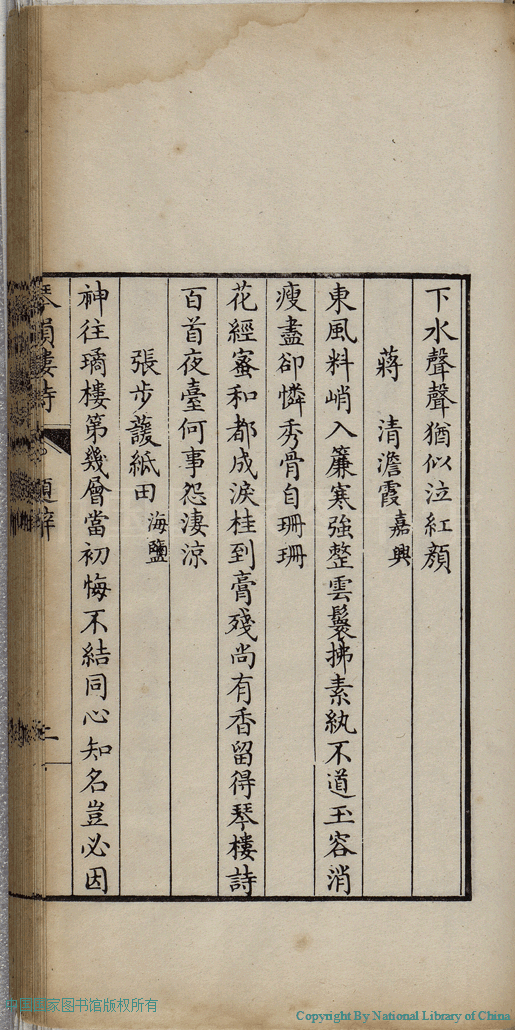 下水聲聲猶似泣紅顏
蔣　清澹霞嘉興
東風料峭入簾寒強整雲鬟拂素紈不道玉容消
瘦盡卻憐秀骨自珊珊
花經蜜和都成淚桂到膏殘尚有香留得琴樓詩
百首夜臺何事怨淒涼
張步萲紙田海鹽
神往璚樓第幾層當初悔不結同心知名豈必因
琴韻樓詩　題辭　二
中国国家图书馆版权所有
Copyright By National Library of China